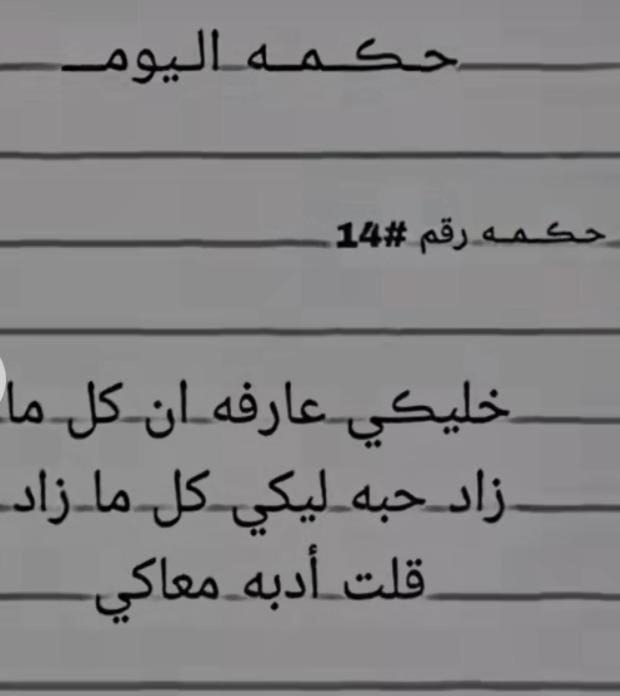 حكمه اليوم
حكمه رقم #14
خليكي عارفه ان كل ما
زاد حبه ليكي كل ما زاد
قلت أدبه معاكي